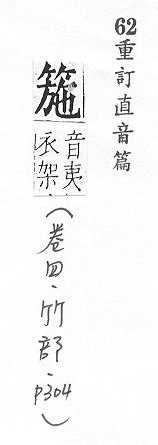 62重訂直音篇
箷
音夷
衣架
(卷四·竹部·p304)